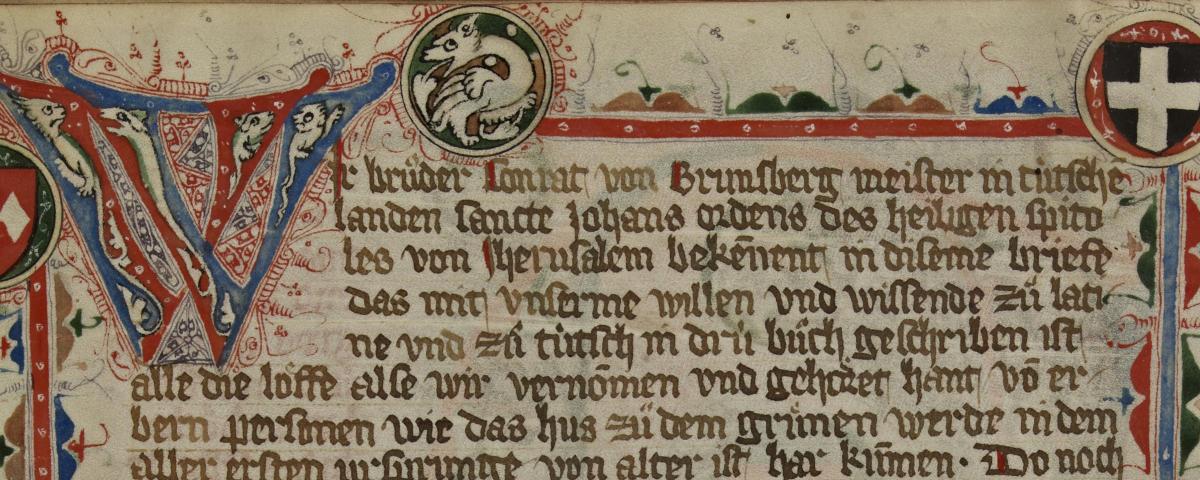 Wr bruͦder Conrat von Brunsberg meister in tuͥtschē
landen sancte Johans ordens des heiligen spito
les von Jherusalem bekēnent in diseme briefe
das mit vnserme willen vnd wissende zuͦ lati
ne vnd zuͦ tuͥtsch in druͥ buͦch geschriben ist
alle die loͤffe alse wir vernōmen vnd gehoͤret hant vō er
bern personen wie das hus zuͦ dem gruͤnen werde in dem
aller ersten vrsprunge von alter ist har kūmen · Do noch